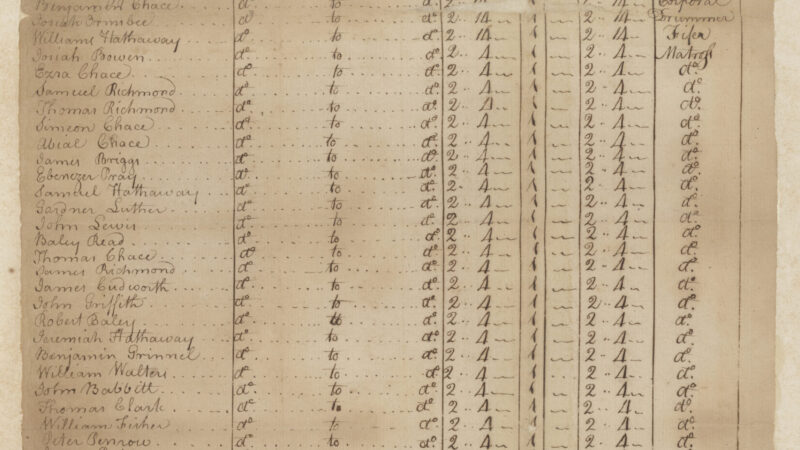 Benjamin Chace dº to dº 2 Corporal
Josiah Ormsbee dº to dº 2 14 1 2 14 Drummer
William Hathaway dº to dº 2 14 1 2 14 Fifer
Josiah Bowen dº to dº 2 4 1 2 4 Matross
Ezra Chace dº to dº 2 4 1 2 4 dº
Samuel Richmond dº to dº 2 4 1 2 4 dº
Thomas Richmond dº to dº 2 4 1 2 4 dº
Simeon Chace dº to dº 2 4 1 2 4 dº
Abial Chace dº to dº 2 4 1 2 4 dº
James Briggs dº to dº 2 4 1 2 4 dº
Ebenezer Pray dº to dº 2 4 1 2 4 dº
Samuel Hathaway dº to dº 2 4 1 2 4 dº
Gardner Luther dº to dº 2 4 1 2 4 dº
John Lewis dº to dº 2 4 1 2 4 dº
Baley Read dº to dº 2 4 1 2 4 dº
Thomas Chace dº to dº 2 4 1 2 4 dº
James Richmond dº to dº 2 4 1 2 4 dº
James Cudworth dº to dº 2 4 1 2 4 dº
John Griffeth dº to dº 2 4 1 2 4 dº
Robert Baley dº to dº 2 4 1 2 4 dº
Jeremiah Hathaway dº to dº 2 4 1 2 4 dº
Benjamin Grinnel dº to dº 2 4 1 2 4 dº
William Walters dº to dº 2 4 1 2 4 dº
John Babbitt dº to dº 2 4 1 2 4 dº
Thomas Clark dº to dº 2 4 1 2 4 dº
William Fisher dº to dº 2 4 1 2 4 dº
Peter Penrow dº to dº 2 4 1 2 4 dº